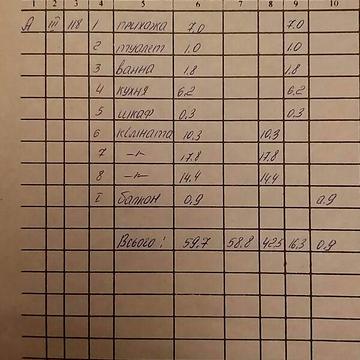 1 2 3 4 5 6 7 8 9 10
А III 118 1 прихожа 7,0 7,0
2 туалет 1.0 1.0
3 ванна 1.8 1.8
4 кухня 6,2 6,2
5 шкаф 0,3 0,3
6 кімната 10,3 10,3
7 -"- 17,8 17,8
8 -"- 14.4 14.4
I балкон 0,9 0,9
Всього: 59,7 58.8 42.5 16,3 0,9